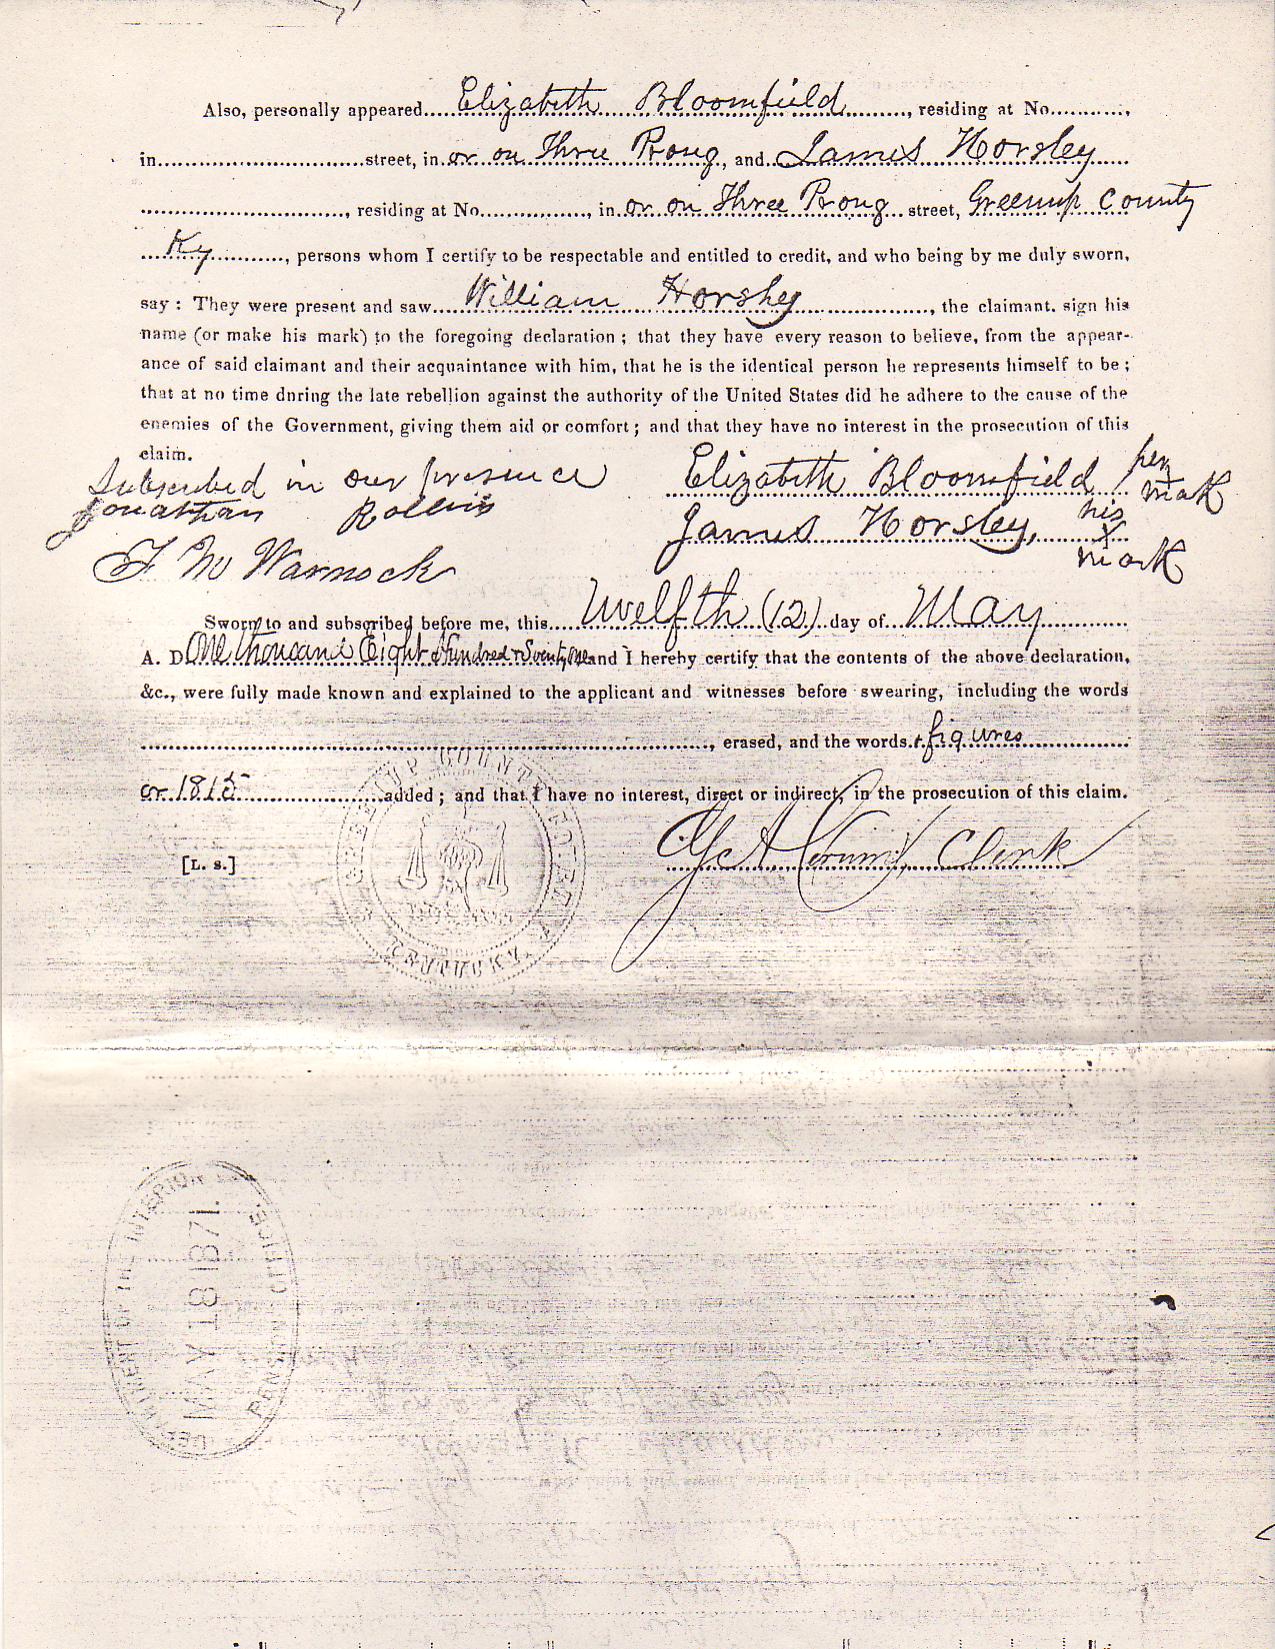 Also, personally appeared Elizabeth Bloomfield, residing at No.
in street, in or on Three Prong, and James Horsley
, residing at No. , in or on Three Prong street, Greenup County
Ky, persons whom I certify to be respectable and entitled to credit, and who being by me duly sworn,
say : They were present and saw William Horsley, the claimant. sign his
name (or make his mark) to the foregoing declaration ; that they have every reason to believe, from the appear-
ance of said claimant and their acquaintance with him, that he is the identical person he represents himself to be ;
that at no time dnring the late rebellion against the authority of the United States did he adhere to the cause of the
enemies of the Government, giving them aid or comfort ; and that they have no interest in the prosecution of this
claim.
Subscribed in our presence
Jonathan Rollins
F M Warnock
Elizabeth Bloomfield her mark
James Horsley, his x mark
Sworn to and subscribed before me, this Twelfth (12) day of May
A. D. One thousand Eight Hundred & Seventy One and I hereby certify that the contents of the above declaration,
&c., were fully made known and explained to the applicant and witnesses before swearing, including the words
, erased, and the words & figures
or 1815 added ; and that I have no interest, direct or indirect, in the prosecution of this claim.
[L. S.]
Clerk
GREENUP COUNTY COURT
KENTUCKY.
DEPARTMENT OF THE INTERIOR
MAY 18 1871.
PENSION OFFICE.